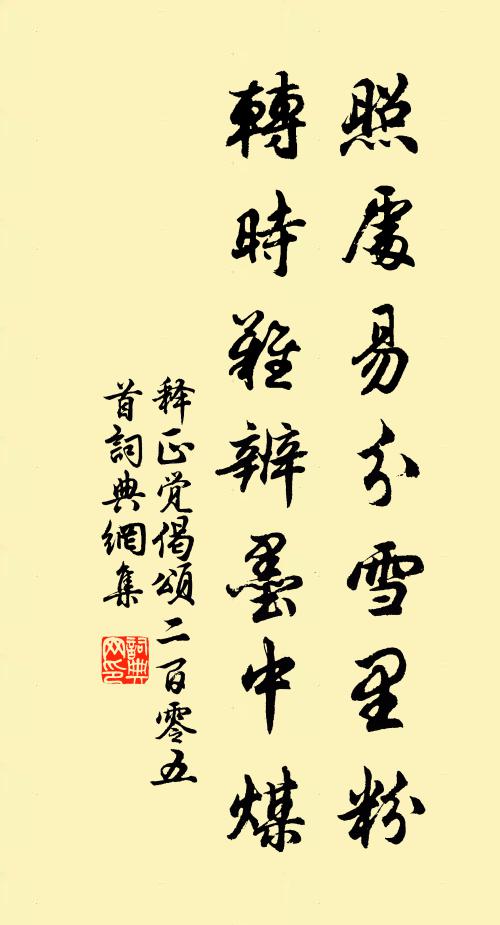 照處易分雪里粉
轉時難辨墨中煤
释正覚偈頌二百零五
首詞典網集
詞典網印